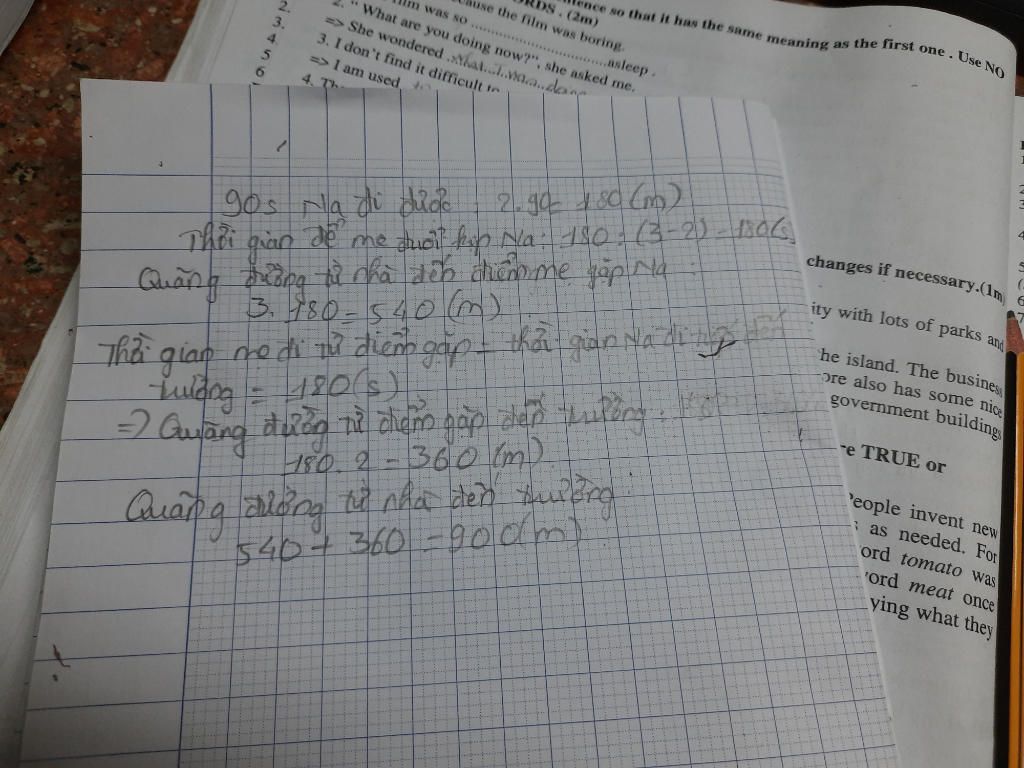 ence so that it has the same meaning as the first one . Use NO
RDS . (2m)
cause the film was boring.
film was so ..............................asleep .
2. " What are you doing now?", she asked me.
=> She wondered
3. I don't find it difficult to
=> I am used
4. Th
2.
3.
4.
5
6
90s Na đi được : 2.90 = 180 (m)
Thời gian để mẹ đuổi kịp Na: 180 : (3-2) = 180(s
Quãng đường từ nhà đến điểm mẹ gặp Na :
3. 180 = 540 (m)
Thời gian mẹ đi từ điểm gặp = thời gian Na đi
trường = 180(s)
=> Quãng đường từ điểm gặp đến trường :
180. 2 = 360 (m)
Quãng đường từ nhà đến trường
540 + 360 = 900(m)
changes if necessary.(1m)
ity with lots of parks and
he island. The business
ore also has some nice
government buildings
re TRUE or
People invent new
as needed. For
ord tomato was
ord meat once
ying what they